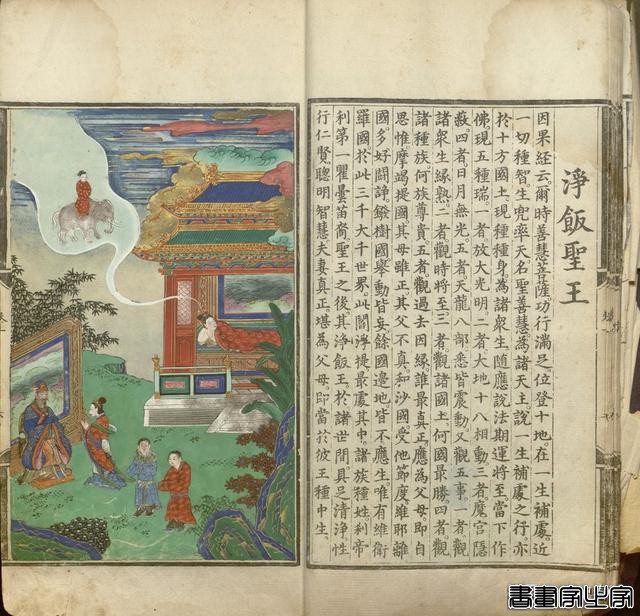 淨飯聖王
因果経云。爾時善慧菩薩功行滿足。位登十地在一生補處。近
一切種智。生兜率天名聖善慧。為諸天主。說一生補處之行。亦
於十方國土。現種種身。為諸衆生随應說法。期運將至當下作
佛。現五種瑞。一者放大光明。二者大地十八相動。三者魔宮隱
蔽。四者日月無光。五者天龍八部悉皆震動。又觀五事。一者觀
諸衆生緣熟。二者觀時將至。三者觀諸國土。何國最勝。四者觀
諸種族何族尊貴。五者觀過去因緣。誰最真正應為父母。即自
思惟摩竭提國其母雖正。其父不真。和沙國受他節度。維耶離
國多好鬪諍。鏺樹國舉動皆妄。餘國邊地皆不應生。唯有維衛
羅國於此三千大千世界。此閻浮提最處其中。諸族種姓刹帝
利第一。瞿曇苗裔聖王之後。其淨飯王於諸世間具足清淨。性
行仁賢。聰明智慧。夫妻真正。堪為父母。即當於彼王種中生。
書畫家之家